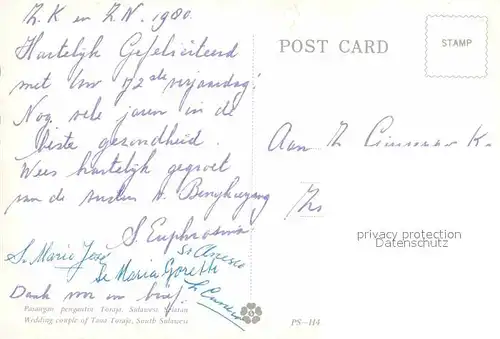 Z. K en Z. N. 1980.
Hartelijk Gefeliciteerd
met Uw 72ste verjaardag!
Nog vele jaren in de
beste gezondheid.
Wees hartelijk gegroet
van de zusters
S. Euphrosina
Sr. Maria José
Sr Maria Goretti
Dank voor uw brief.
Pasangan pengantin Toraja, Sulawesi Selatan
Wedding couple of Tana Toraja, South Sulawesi
POST CARD
STAMP
Aan Z
privacy protection
Datenschutz
PS-114